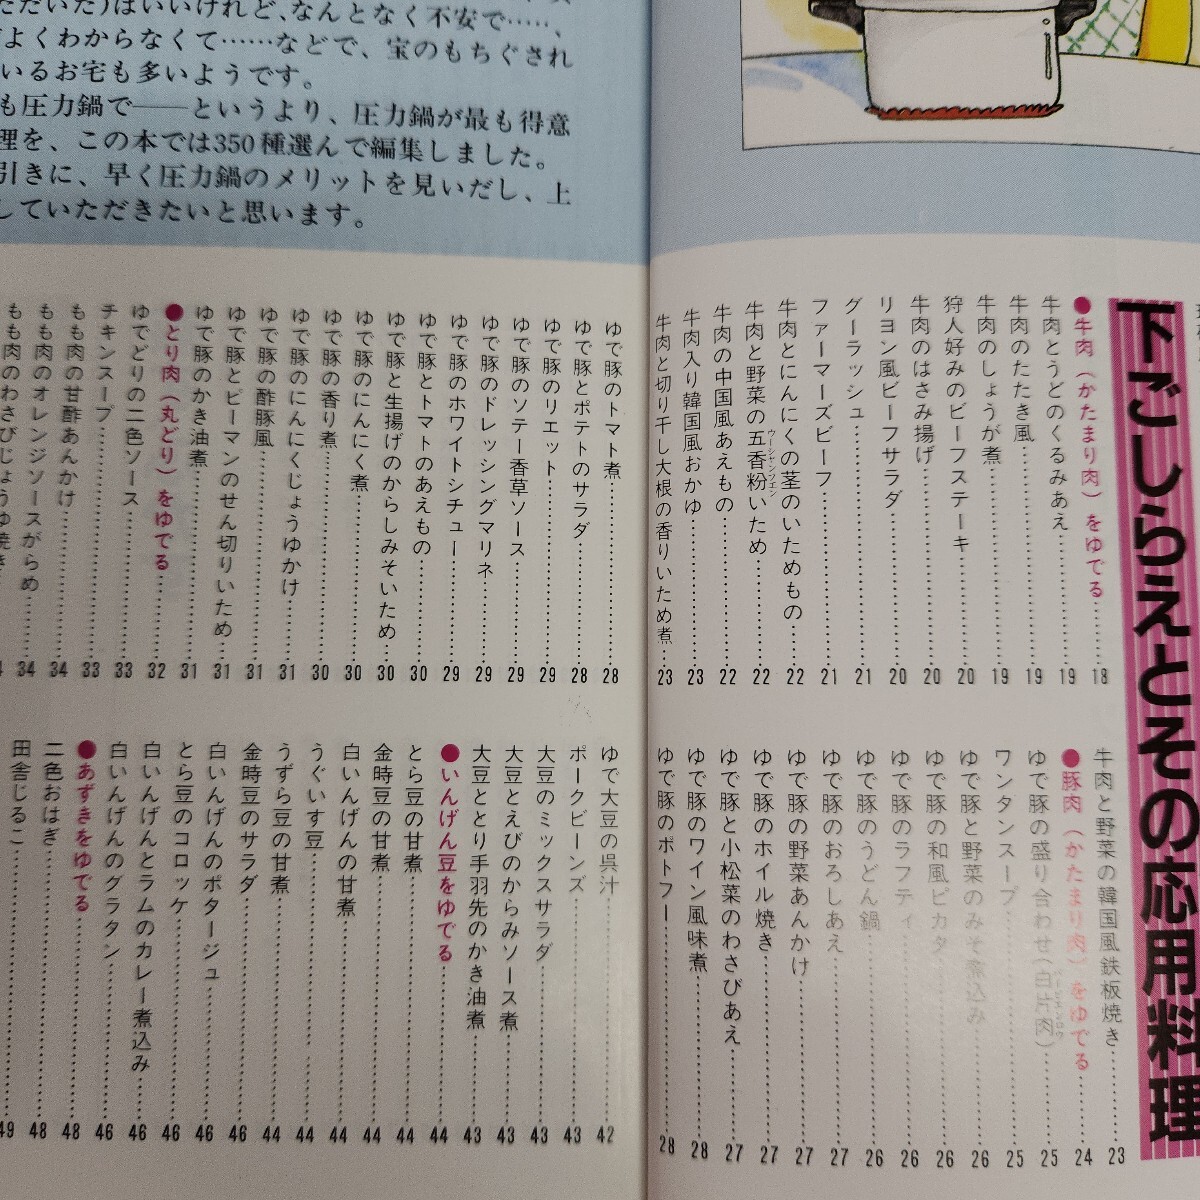 ただいた)はいいけれど、なんとなく不安で……、
よくわからなくて……などで、宝のもちぐされ
いるお宅も多いようです。
も圧力鍋で――というより、圧力鍋が最も得意
理を、この本では350種選んで編集しました。
引きに、早く圧力鍋のメリットを見いだし、上
していただきたいと思います。
下ごしらえとその応用料理
●牛肉(かたまり肉)をゆでる……18
牛肉とうどのくるみあえ……19
牛肉のたたき風……19
牛肉のしょうが煮……19
狩人好みのビーフステーキ……20
牛肉のはさみ揚げ……20
リヨン風ビーフサラダ……20
グーラッシュ……21
ファーマーズビーフ……21
牛肉とにんにくの茎のいためもの……22
牛肉と野菜の五香粉いため……22
ウーシャンフエン
牛肉の中国風あえもの……22
牛肉入り韓国風おかゆ……23
牛肉と切り干し大根の香りいため煮……23
牛肉と野菜の韓国風鉄板焼き……23
●豚肉(かたまり肉)をゆでる……24
ゆで豚の盛り合わせ(白片肉)……25
ワンタンスープ……25
ゆで豚と野菜のみそ煮込み……26
ゆで豚の和風ピカタ……26
ゆで豚のラフティ……26
ゆで豚のうどん鍋……26
ゆで豚のおろしあえ……27
ゆで豚の野菜あんかけ……27
ゆで豚のホイル焼き……27
ゆで豚と小松菜のわさびあえ……27
ゆで豚のワイン風味煮……28
ゆで豚のポトフー……28
ゆで豚のトマト煮……28
ゆで豚とポテトのサラダ……28
ゆで豚のリエット……29
ゆで豚のソテー香草ソース……29
ゆで豚のドレッシングマリネ……29
ゆで豚のホワイトシチュー……29
ゆで豚とトマトのあえもの……30
ゆで豚と生揚げのからしみそいため……30
ゆで豚のにんにく煮……30
ゆで豚の香り煮……30
ゆで豚のにんにくじょうゆかけ……31
ゆで豚の酢豚風……31
ゆで豚とピーマンのせん切りいため……31
ゆで豚のかき油煮……31
●とり肉(丸どり)をゆでる……32
ゆでどりの二色ソース……33
チキンスープ……33
もも肉の甘酢あんかけ……34
もも肉のオレンジソースがらめ……34
もも肉のわさびじょうゆ焼き
ゆで大豆の呉汁……42
ポークビーンズ……43
大豆のミックスサラダ……43
大豆とえびのからみソース煮……43
大豆ととり手羽先のかき油煮……43
●いんげん豆をゆでる……44
とら豆の甘煮……44
金時豆の甘煮……44
白いんげんの甘煮……44
うぐいす豆……44
うずら豆の甘煮……44
金時豆のサラダ……46
白いんげんのポタージュ……46
とら豆のコロッケ……46
白いんげんとラムのカレー煮込み……46
白いんげんのグラタン……46
●あずきをゆでる……48
二色おはぎ……48
田舎じるこ……49